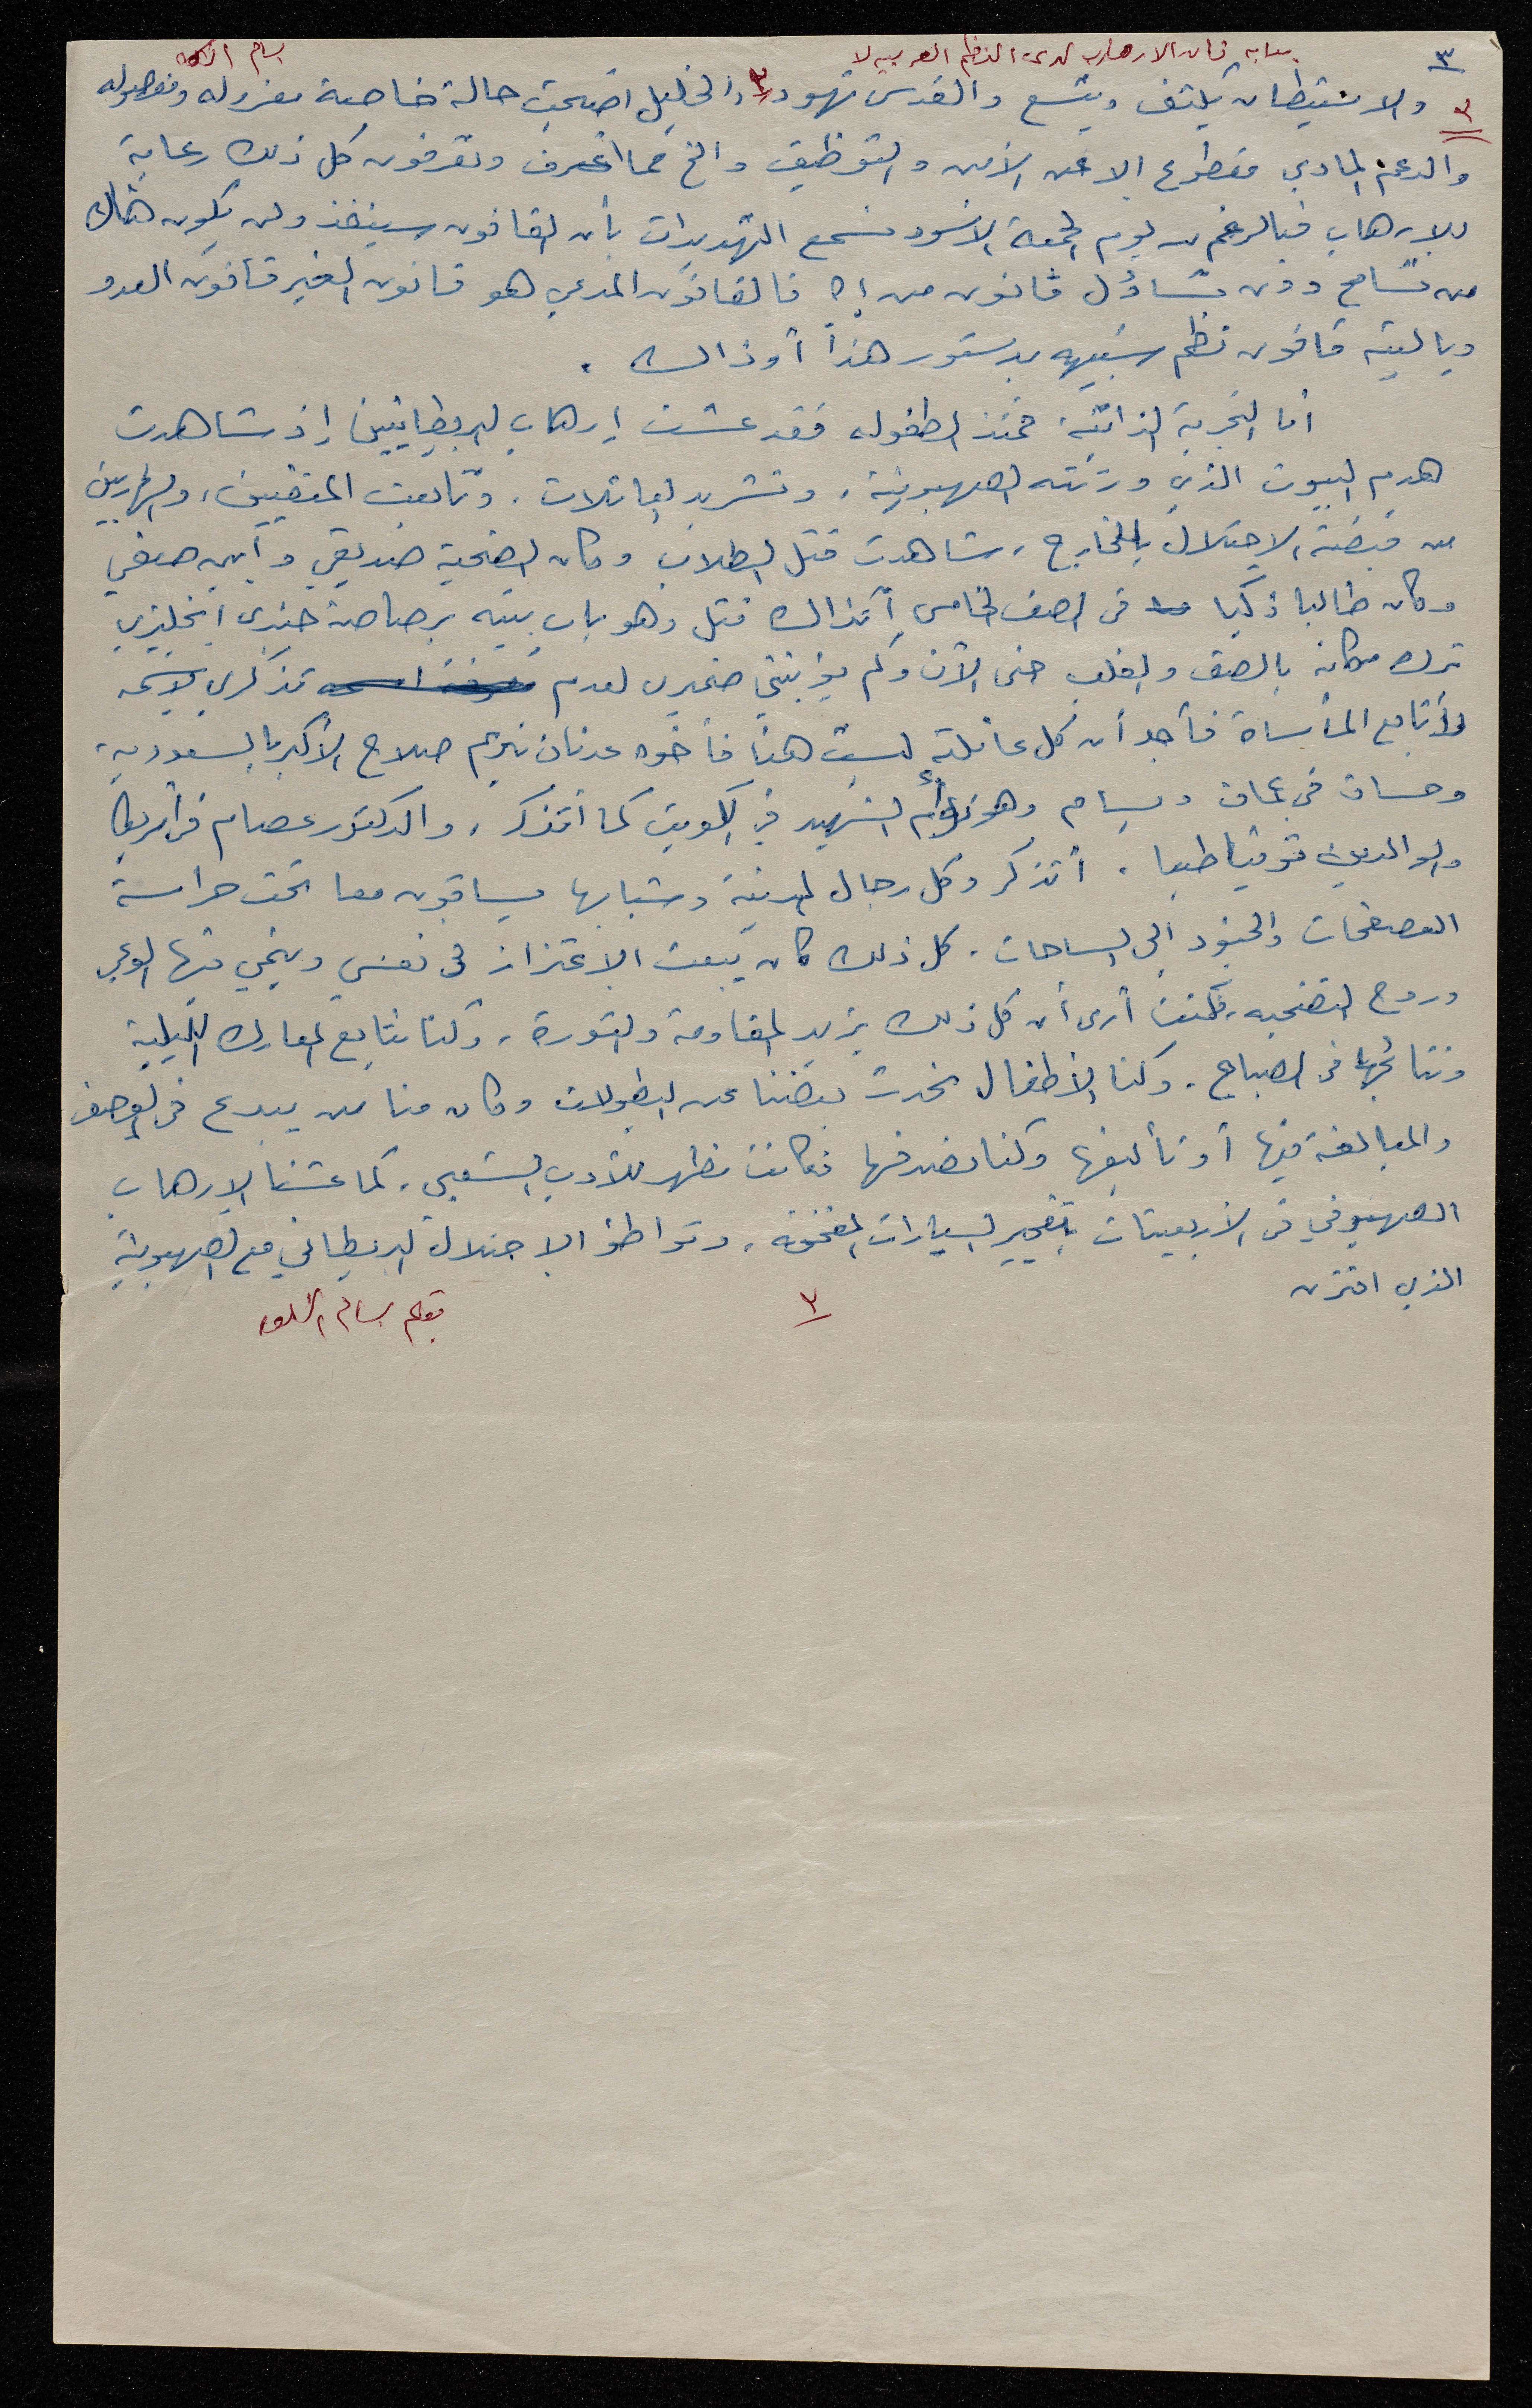 ٣
لدى النظم العربية لا
٣ والاستيطان يكثف ويتسع والقدس تهود، والخليل اضحت حالة خاصة معزوله ومفصوله
والدعم المادي مقطوع الا عن الأمن والتوظيف والخ مما اعرف وتعرفون كل ذلك رعاية
للارهاب فبالرغم من يوم الجمعة الاسود نسمع التهديدات بأن القانون سينفذ ولن يكون هناك
من تسامح ودون تساؤل قانون من إلا فالقانون المدعي هو قانون الغير قانون العدو
ويا ليته قانون نظم شبيه بدستور هذا أو ذالك .
أما التجربة الذاتية، فمنذ الطفوله فقد عشت إرهاب البريطانيين إذ شاهدت
هدم البيوت الذي ورثته الصهيونية، وتشريد العائلات، وتابعت المنفيين، والهاربين
من قبضة الاحتلال بالخارج، شاهدت قتل الطلاب وكان الضحية صديقي وابن صفي
وكان طالبا ذكيا في الصف الخامس آنذاك قتل وهو بباب بيته برصاصة جندي انجليزي
ترك مكانه بالصف والقلب حتى الآن وكم يؤنبني ضميري لعدم تذكري لاسمه
وأتابع المأساة فأجد أن كل عائلته ليست هنا فأخوه عدنان نديم صلاح الأكبر بالسعودية،
وحسان في عمان وبسام وهو توأم الشهيد في الكويت كما أتذكر، والدكتور عصام في أمريكا
والوالدين توفيا طبعا . أتذكر وكل رجال المدينة وشبابها يساقون معا تحت حراسة
المصفحات والجنود الى الساحات. كل ذلك كان يبعث الاعتزاز في نفسي وينمي فيها الوعي
وروح التضحيه، فكنت أرى أن كل ذلك يزيد المقاومة والثورة، وكنا نتابع المعارك الليلية
ونتائجها في الصباح. وكنا الأطفال نحدث بعضنا عن البطولات وكان منا من يبدع في الوصف
والمبالغة فيها أو تأليفها وكنا نصدقها فكانت مظهر للأدب الشعبي. كما عشنا الارهاب
الصهيوني في الأربعينات بتفجير السيارات المفخخة، وتواطؤ الاحتلال البريطاني مع الصهيونية
الذي اقترن
٣
بقلم بسام